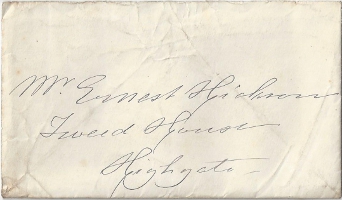 Mr. Ernest Hickson
Tweed House
Highgate